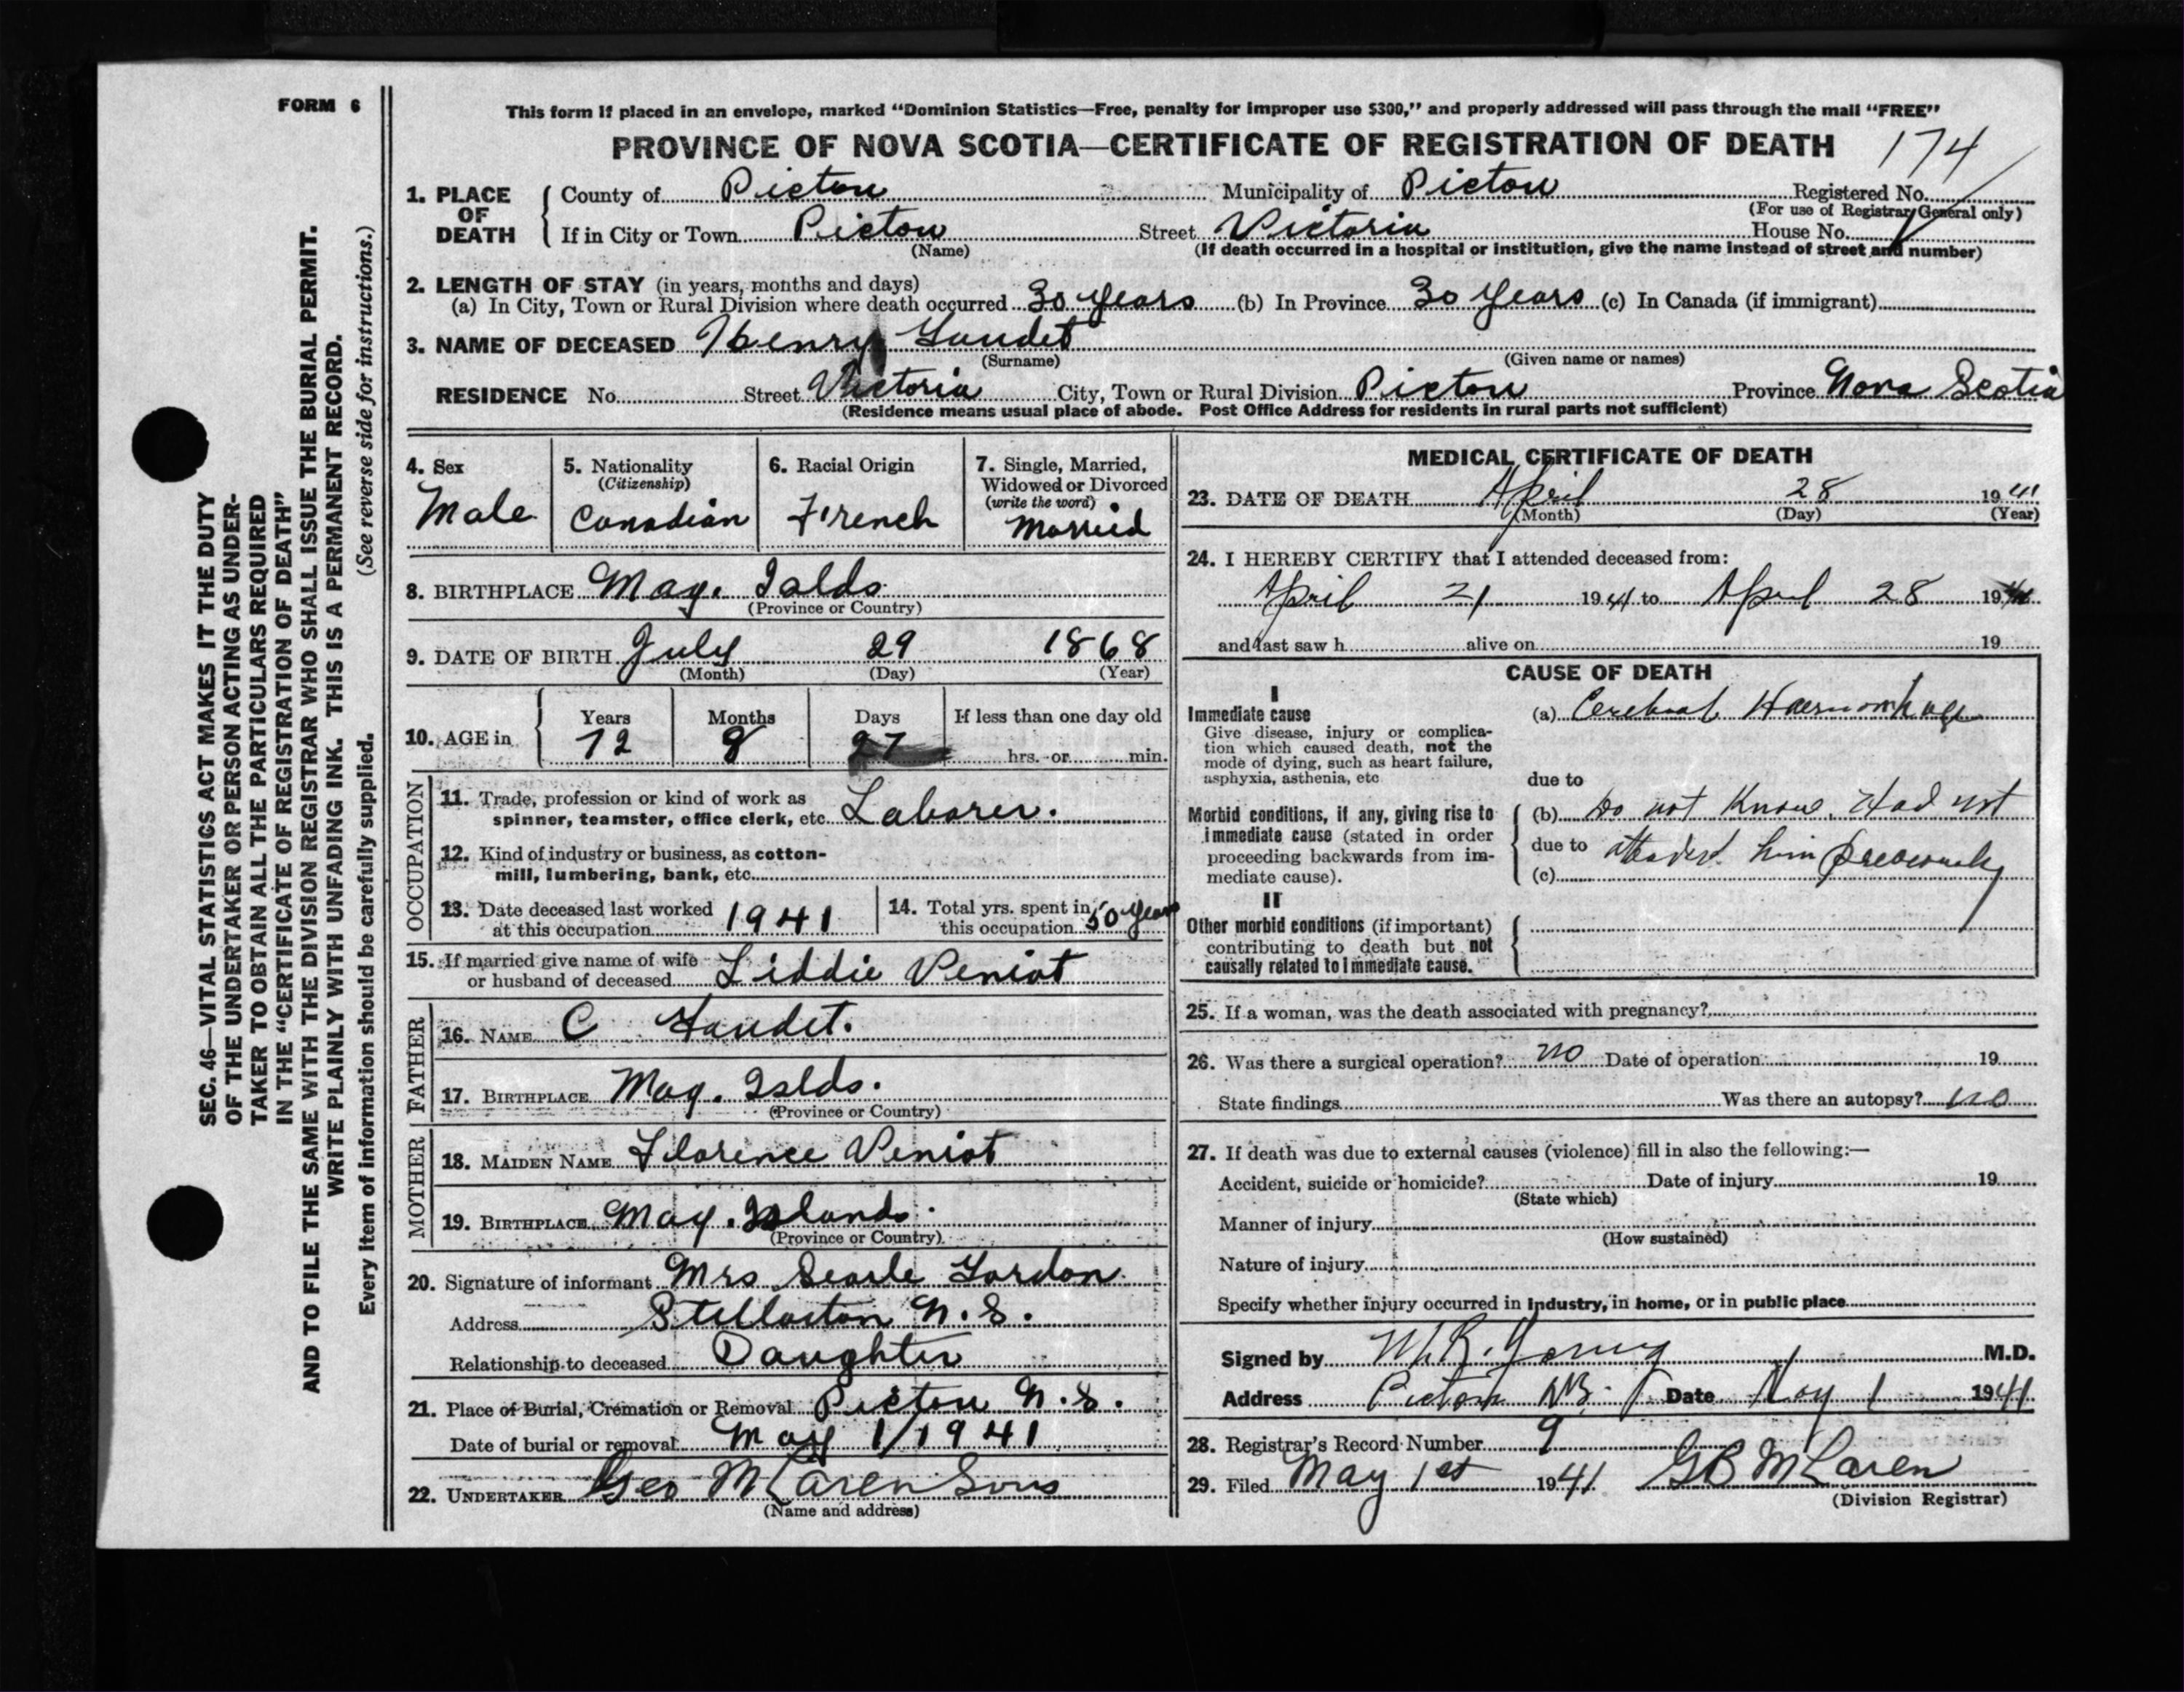 FORM 6
This form if placed in an envelope, marked "Dominion Statistics—Free, penalty for improper use $300," and properly addressed will pass through the mail "FREE"
PROVINCE OF NOVA SCOTIA—CERTIFICATE OF REGISTRATION OF DEATH 174
1. PLACE OF DEATH County of Pictou Municipality of Pictou Registered No.
(For use of Registrar General only)
If in City or Town Pictou Street Victoria House No.
(Name) (If death occurred in a hospital or institution, give the name instead of street and number)
2. LENGTH OF STAY (in years, months and days)
(a) In City, Town or Rural Division where death occurred 30 years (b) In Province 30 years (c) In Canada (if immigrant)
3. NAME OF DECEASED Henry Gaudet
(Surname) (Given name or names)
RESIDENCE No. Street Victoria City, Town or Rural Division Pictou Province Nova Scotia
(Residence means usual place of abode. Post Office Address for residents in rural parts not sufficient)
4. Sex
Male
5. Nationality
(Citizenship)
Canadian
6. Racial Origin
French
7. Single, Married,
Widowed or Divorced
(write the word)
Married
8. BIRTHPLACE Mag. Islds.
(Province or Country)
9. DATE OF BIRTH July 29 1868
(Month) (Day) (Year)
10. AGE in Years Months Days If less than one day old
72 8 27 hrs. or min.
OCCUPATION
11. Trade, profession or kind of work as
spinner, teamster, office clerk, etc. Laborer.
12. Kind of industry or business, as cotton-
mill, lumbering, bank, etc.
13. Date deceased last worked
at this occupation 1941
14. Total yrs. spent in
this occupation 50 years
15. If married give name of wife
or husband of deceased Liddie Veniot
FATHER
16. NAME C Gaudet.
17. BIRTHPLACE Mag. Islds.
(Province or Country)
MOTHER
18. MAIDEN NAME Florence Veniot
19. BIRTHPLACE Mag. Islands.
(Province or Country)
20. Signature of informant Mrs Searle Gordon
Address Stellarton N.S.
Relationship to deceased Daughter
21. Place of Burial, Cremation or Removal Pictou N.S.
Date of burial or removal May 1/1941
22. UNDERTAKER Geo McLaren Sons
(Name and address)
MEDICAL CERTIFICATE OF DEATH
23. DATE OF DEATH April 28 1941
(Month) (Day) (Year)
24. I HEREBY CERTIFY that I attended deceased from:
April 21 1941 to April 28 1941
and last saw h alive on 19
CAUSE OF DEATH
I
Immediate cause
Give disease, injury or complica-
tion which caused death, not the
mode of dying, such as heart failure,
asphyxia, asthenia, etc
(a) Cerebral Haemorrhage
due to
Morbid conditions, if any, giving rise to
immediate cause (stated in order
proceeding backwards from im-
mediate cause).
(b) Do not know. Had not
due to attended him previously
(c)
II
Other morbid conditions (if important)
contributing to death but not
causally related to immediate cause.
25. If a woman, was the death associated with pregnancy?
26. Was there a surgical operation? no Date of operation 19
State findings Was there an autopsy? no
27. If death was due to external causes (violence) fill in also the following:—
Accident, suicide or homicide? Date of injury 19
(State which)
Manner of injury
(How sustained)
Nature of injury
Specify whether injury occurred in industry, in home, or in public place
Signed by M.R. Young M.D.
Address Pictou N.S. Date May 1 1941
28. Registrar's Record Number 9
29. Filed May 1st 1941 GB McLaren
(Division Registrar)
SEC. 46—VITAL STATISTICS ACT MAKES IT THE DUTY
OF THE UNDERTAKER OR PERSON ACTING AS UNDER-
TAKER TO OBTAIN ALL THE PARTICULARS REQUIRED
IN THE "CERTIFICATE OF REGISTRATION OF DEATH"
AND TO FILE THE SAME WITH THE DIVISION REGISTRAR WHO SHALL ISSUE THE BURIAL PERMIT.
WRITE PLAINLY WITH UNFADING INK. THIS IS A PERMANENT RECORD.
Every item of information should be carefully supplied. (See reverse side for instructions.)